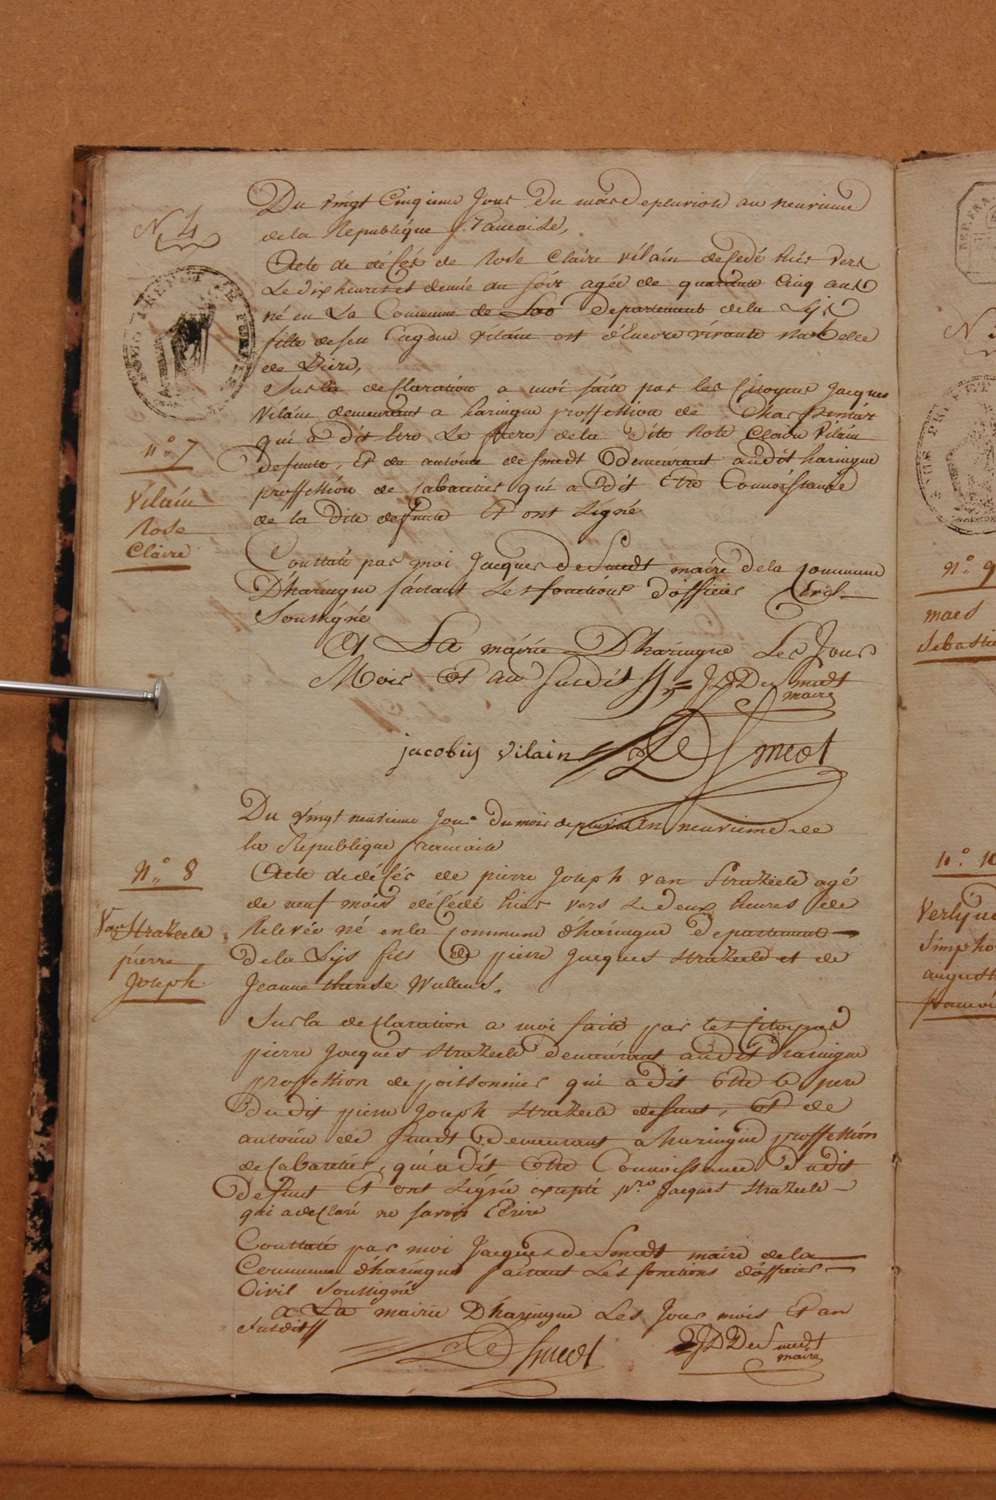 N 4
Du vingt Cinqieme Jour du mois de pluriose an neuvieme
de la Republique francaise,
Acte de déséz de Rose Claire vilain decedé hier vers
Le dix heures et demie du soir agée de quarante Cinq ans
né en La Commune de Departement de la Lijs
fille de feu vilain et
de
Sur la desclaration a moi faite par les Citoyens Jacques
Vilain demeurant a haringue proffession de
qui a dit être Le frere de la dite Rose Claire Vilain
defunte, et de antoine desmedt demeurant audit haringue
proffession de Cabaretier qui a dit Etre Connoissance
de la dite defunte Et ont signé
Conttaté par moi Jacques de Smedt maire de la Commune
D'haringue faisant Les fonctions d'officier Civil
Soussigné
A La mairie D'haringue Les Jour
Mois Et an susdit JDDe Smedt
maire
jacobus vilain De Smedt
n° 7
Vilain
Rose
Claire
Du vingt neuvieme Jour du mois de pluriose an neuvieme de
la Republique francaise
Acte de déséz de pierre Joseph van Strazeele agé
de neuf mois décédé hier vers Le deux heures de
Relevée né en la Commune d'haringue departement
de la Lijs fils de pierre Jacques Strazeele et de
Jeanne therese Wullens.
Sur la desclaration a moi faite par les Citoyens
pierre Jacques Strazeele demeurant audit haringue
proffession de poissonnier qui a dit être le pere
du dit pierre Joseph Strazeele defunt, Et de
antoine de Smedt demeurant a haringue proffession
de Cabaretier, qui a dit être Connoissance dudit
Defunt Et ont signée excepté p.re Jacques Strazeele
qui a desclaré ne savoir Ecrire
Conttaté par moi Jacques de Smedt maire de la
Commune d'haringue faisant Les fonctions d'officier
Civil Soussigné
a La mairie D'haringue Les Jour mois Et an
susdit
De Smedt JDDe Smedt
maire
n° 8
Van Strazeele
pierre
Joseph
n° 9
maes
n° 10